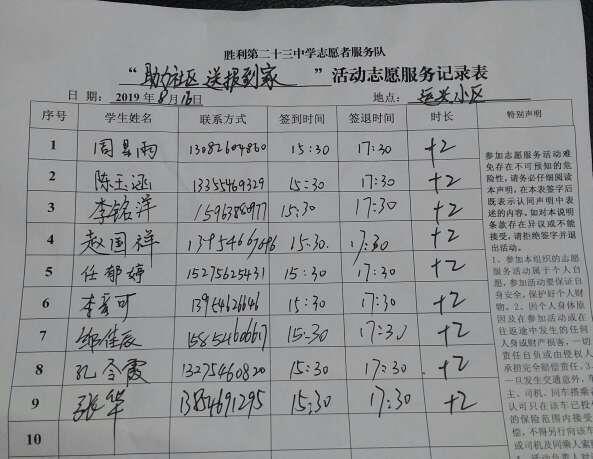 胜利第二十三中学志愿者服务队
“助力社区 送报到家”活动志愿服务记录表
日 期：2019年8月16日 地点：运兴小区
序号 学生姓名 联系方式 签到时间 签退时间 时长 特别声明
1 周昱雨 13082604860 15:30 17:30 +2
2 陈玉涵 13355469329 15:30 17:30 +2
3 李铭洋 15:30 17:30 +2
4 赵国祥 15:30 17:30 +2
5 任郁婷 15275625431 15:30 17:30 +2
6 李彦可 13954626646 15:30 17:30 +2
7 邹佳辰 15:30 17:30 +2
8 孔令霞 13275460820 15:30 17:30 +2
9 张华 13854691295 15:30 17:30 +2
10
参加志愿服务活动难
免存在不可预知的危
险性，请务必仔细阅读
本声明，在本表签字后
既表示认同声明中表
述的内容。如对本说明
条款存在异议或不能
接受，请拒绝签字并退
出活动。
1、参加本组织的志愿
服务活动属于个人自
愿，参加活动要保证自
身安全，保护好个人财
物。2、因个人身体原
因及在参加活动或在
往返途中发生的任何
人身或财产损害，一切
责任自负或由侵权人
承担完全赔偿责任。3、
一旦发生交通意外，车
主、司机、同车搭乘者
认可只在该车已投保
的保险范围内接受
偿，不得另行向该车
或司机及同乘人索赔
4、活动负责人对